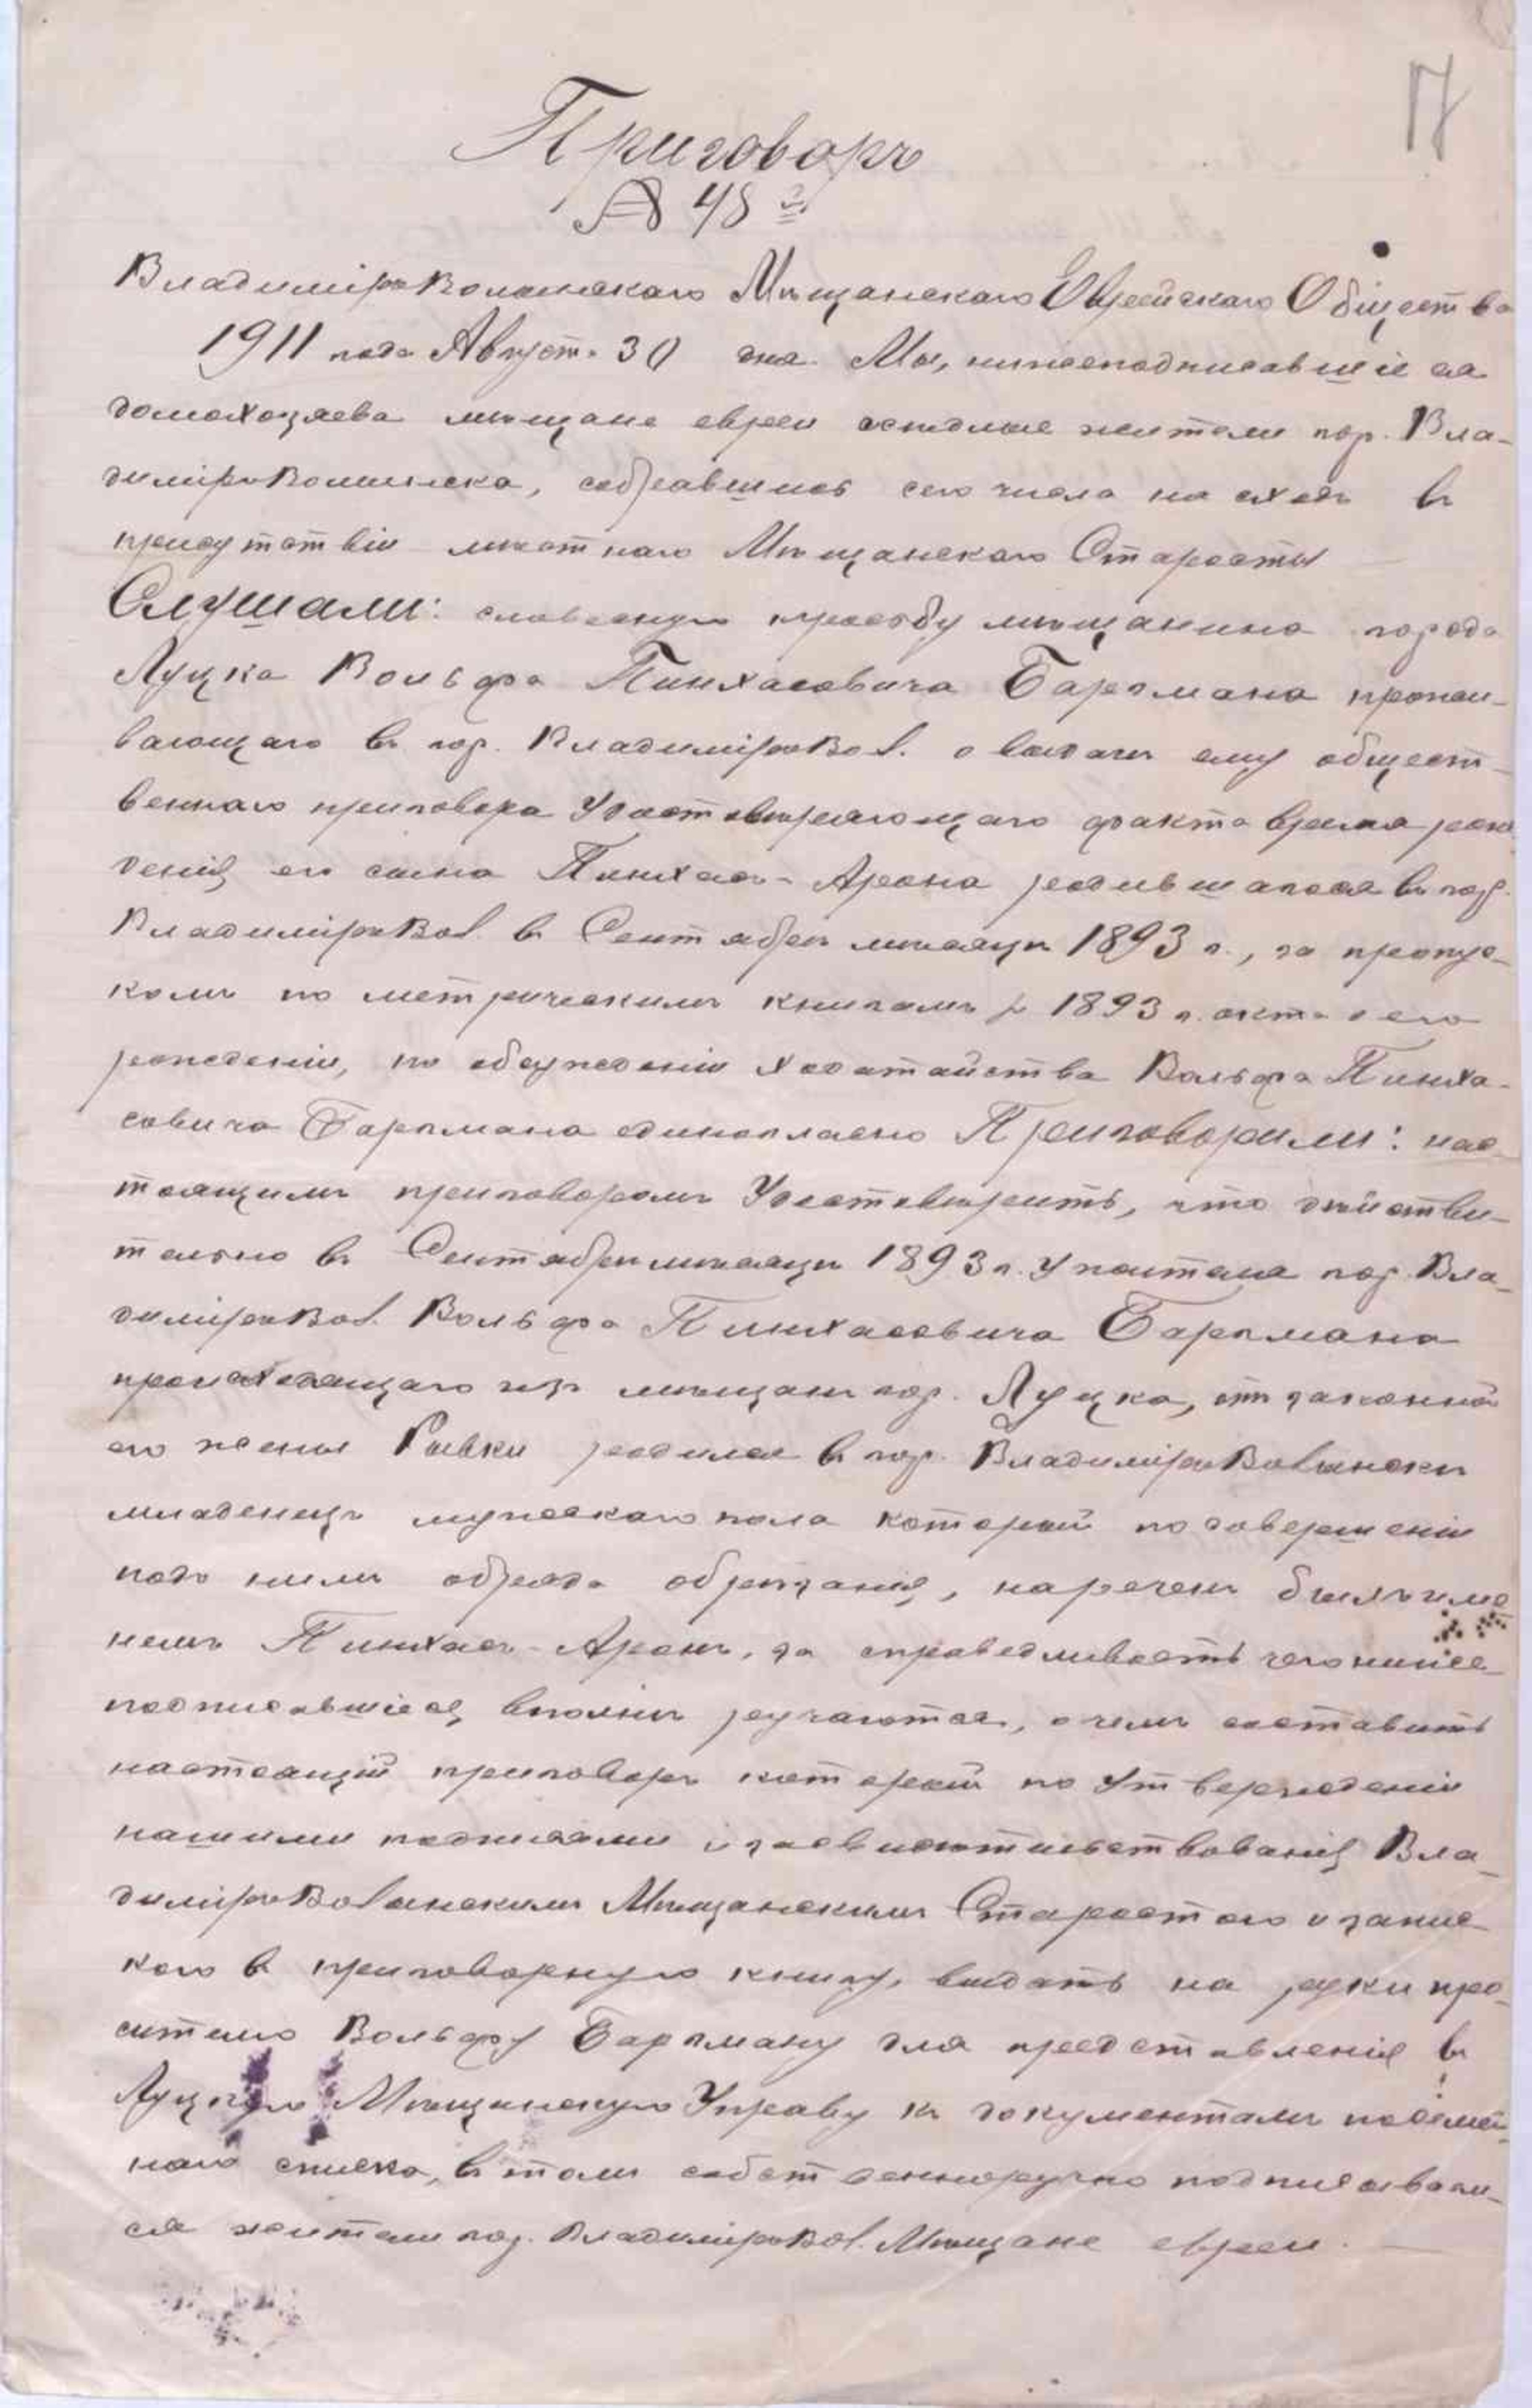 17
Приговоръ
№ 48й
ВладимірВолынскаго Мѣщанскаго Еврейскаго Общества
1911 года Августа 30 дня. Мы, нижеподписавшіеся
домохозяева мѣщане евреи осѣдлые жители гор. Вла-
димірВолынска, собравшись сего числа на сходъ въ
присутствіи мѣстнаго Мѣщанскаго Старосты
Слушали: словесную просьбу мѣщанина города
Луцка Вольфа Пинхасовича Баргмана прожи-
вающаго въ гор. ВладимірВол. о выдачи ему общест-
веннаго приговора удостовѣряющаго факта время рож-
денія его сына Пинхасъ-Арона родившагося въ гор.
ВладимірВол. въ Сентябрѣ мѣсяцѣ 1893 г., за пропус-
комъ по метрическимъ книгамъ 1893 г. акта о его
рожденіи, по обсужденіи ходатайства Вольфа Пинха-
совича Баргмана единогласно Приговорили: нас-
тоящимъ приговоромъ Удостовѣрить, что дѣйстви-
тельно въ Сентябрѣ мѣсяцѣ 1893 г. у жителя гор. Вла-
димірВол. Вольфа Пинхасовича Баргмана
происходящаго изъ мѣщанъ гор. Луцка, отъ законной
его жены Ривки родился въ гор. ВладимірВолынскѣ
младенецъ мужескаго пола который по совершеніи
надъ нимъ обряда обрѣзанія, нареченъ былъ име-
немъ Пинхасъ-Аронъ, за справедливость чего ниже-
подписавшіеся вполнѣ ручаются, о чемъ составить
настоящій приговоръ который по утвержденіи
нашими подписями и засвидѣтельствованія Вла-
димірВолынскимъ Мѣщанскимъ Старостою и запис-
кою въ приговорную книгу, выдать на руки про-
сителю Вольфу Баргману для представленія въ
Луцкую Мѣщанскую Управу къ документамъ посемей-
наго списка, въ томъ собственноручно подписывали-
ся жители гор. ВладимірВол. Мѣщане евреи.